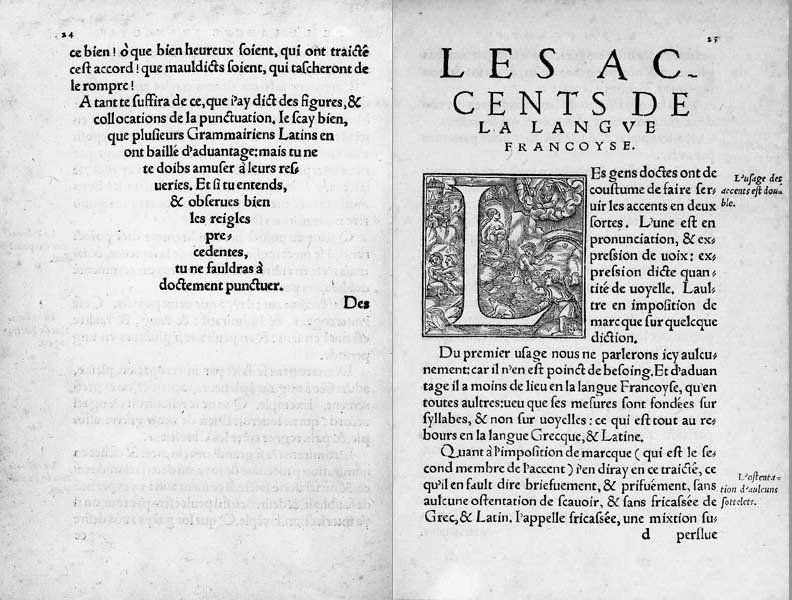 24
ce bien! ò que bien heureux soient, qui ont traictê
cest accord! que mauldicts soient, qui tascheront de
le rompre!
A tant te suffira de ce, que i'ay dict des figures, &
collocations de la punctuation. Ie scay bien,
que plusieurs Grammairiens Latins en
ont baillé d'aduantage: mais tu ne
te doibs amuser à leurs res⸗
ueries. Et si tu entends,
& obserues bien
les reigles
pre⸗
cedentes,
tu ne fauldras à
doctement punctuer.
Des
25
LES AC-
CENTS DE
LA LANGVE
FRANCOYSE.
LEs gens doctes ont de
coustume de faire ser⸗
uir les accents en deux
sortes. L'une est en
pronunciation, & ex⸗
pression de uoix: ex⸗
pression dicte quan⸗
tité de uoyelle. L'aul⸗
tre en imposition de
marcque sur quelcque
diction.
L'usage des
accents est dou⸗
ble.
Du premier usage nous ne parlerons icy aulcu⸗
nement: car il n'en est poinct de besoing. Et d'aduan
tage il a moins de lieu en la langue Francoyse, qu'en
toutes aultres: ueu que ses mesures sont fondées sur
syllabes, & non sur uoyelles: ce qui est tout au re⸗
bours en la langue Grecque, & Latine.
Quant à l'imposition de marcque ( qui est le se⸗
cond membre de l'accent ) i'en diray en ce traicté, ce
qu'il en fault dire briefuement, & priséuement, sans
aulcune ostentation de scauoir, & sans fricassée de
Grec, & Latin. I'appelle fricassée, une mixtion su⸗
L'ostenta⸗
tion d'aulcuns
sottelets.
d perflue